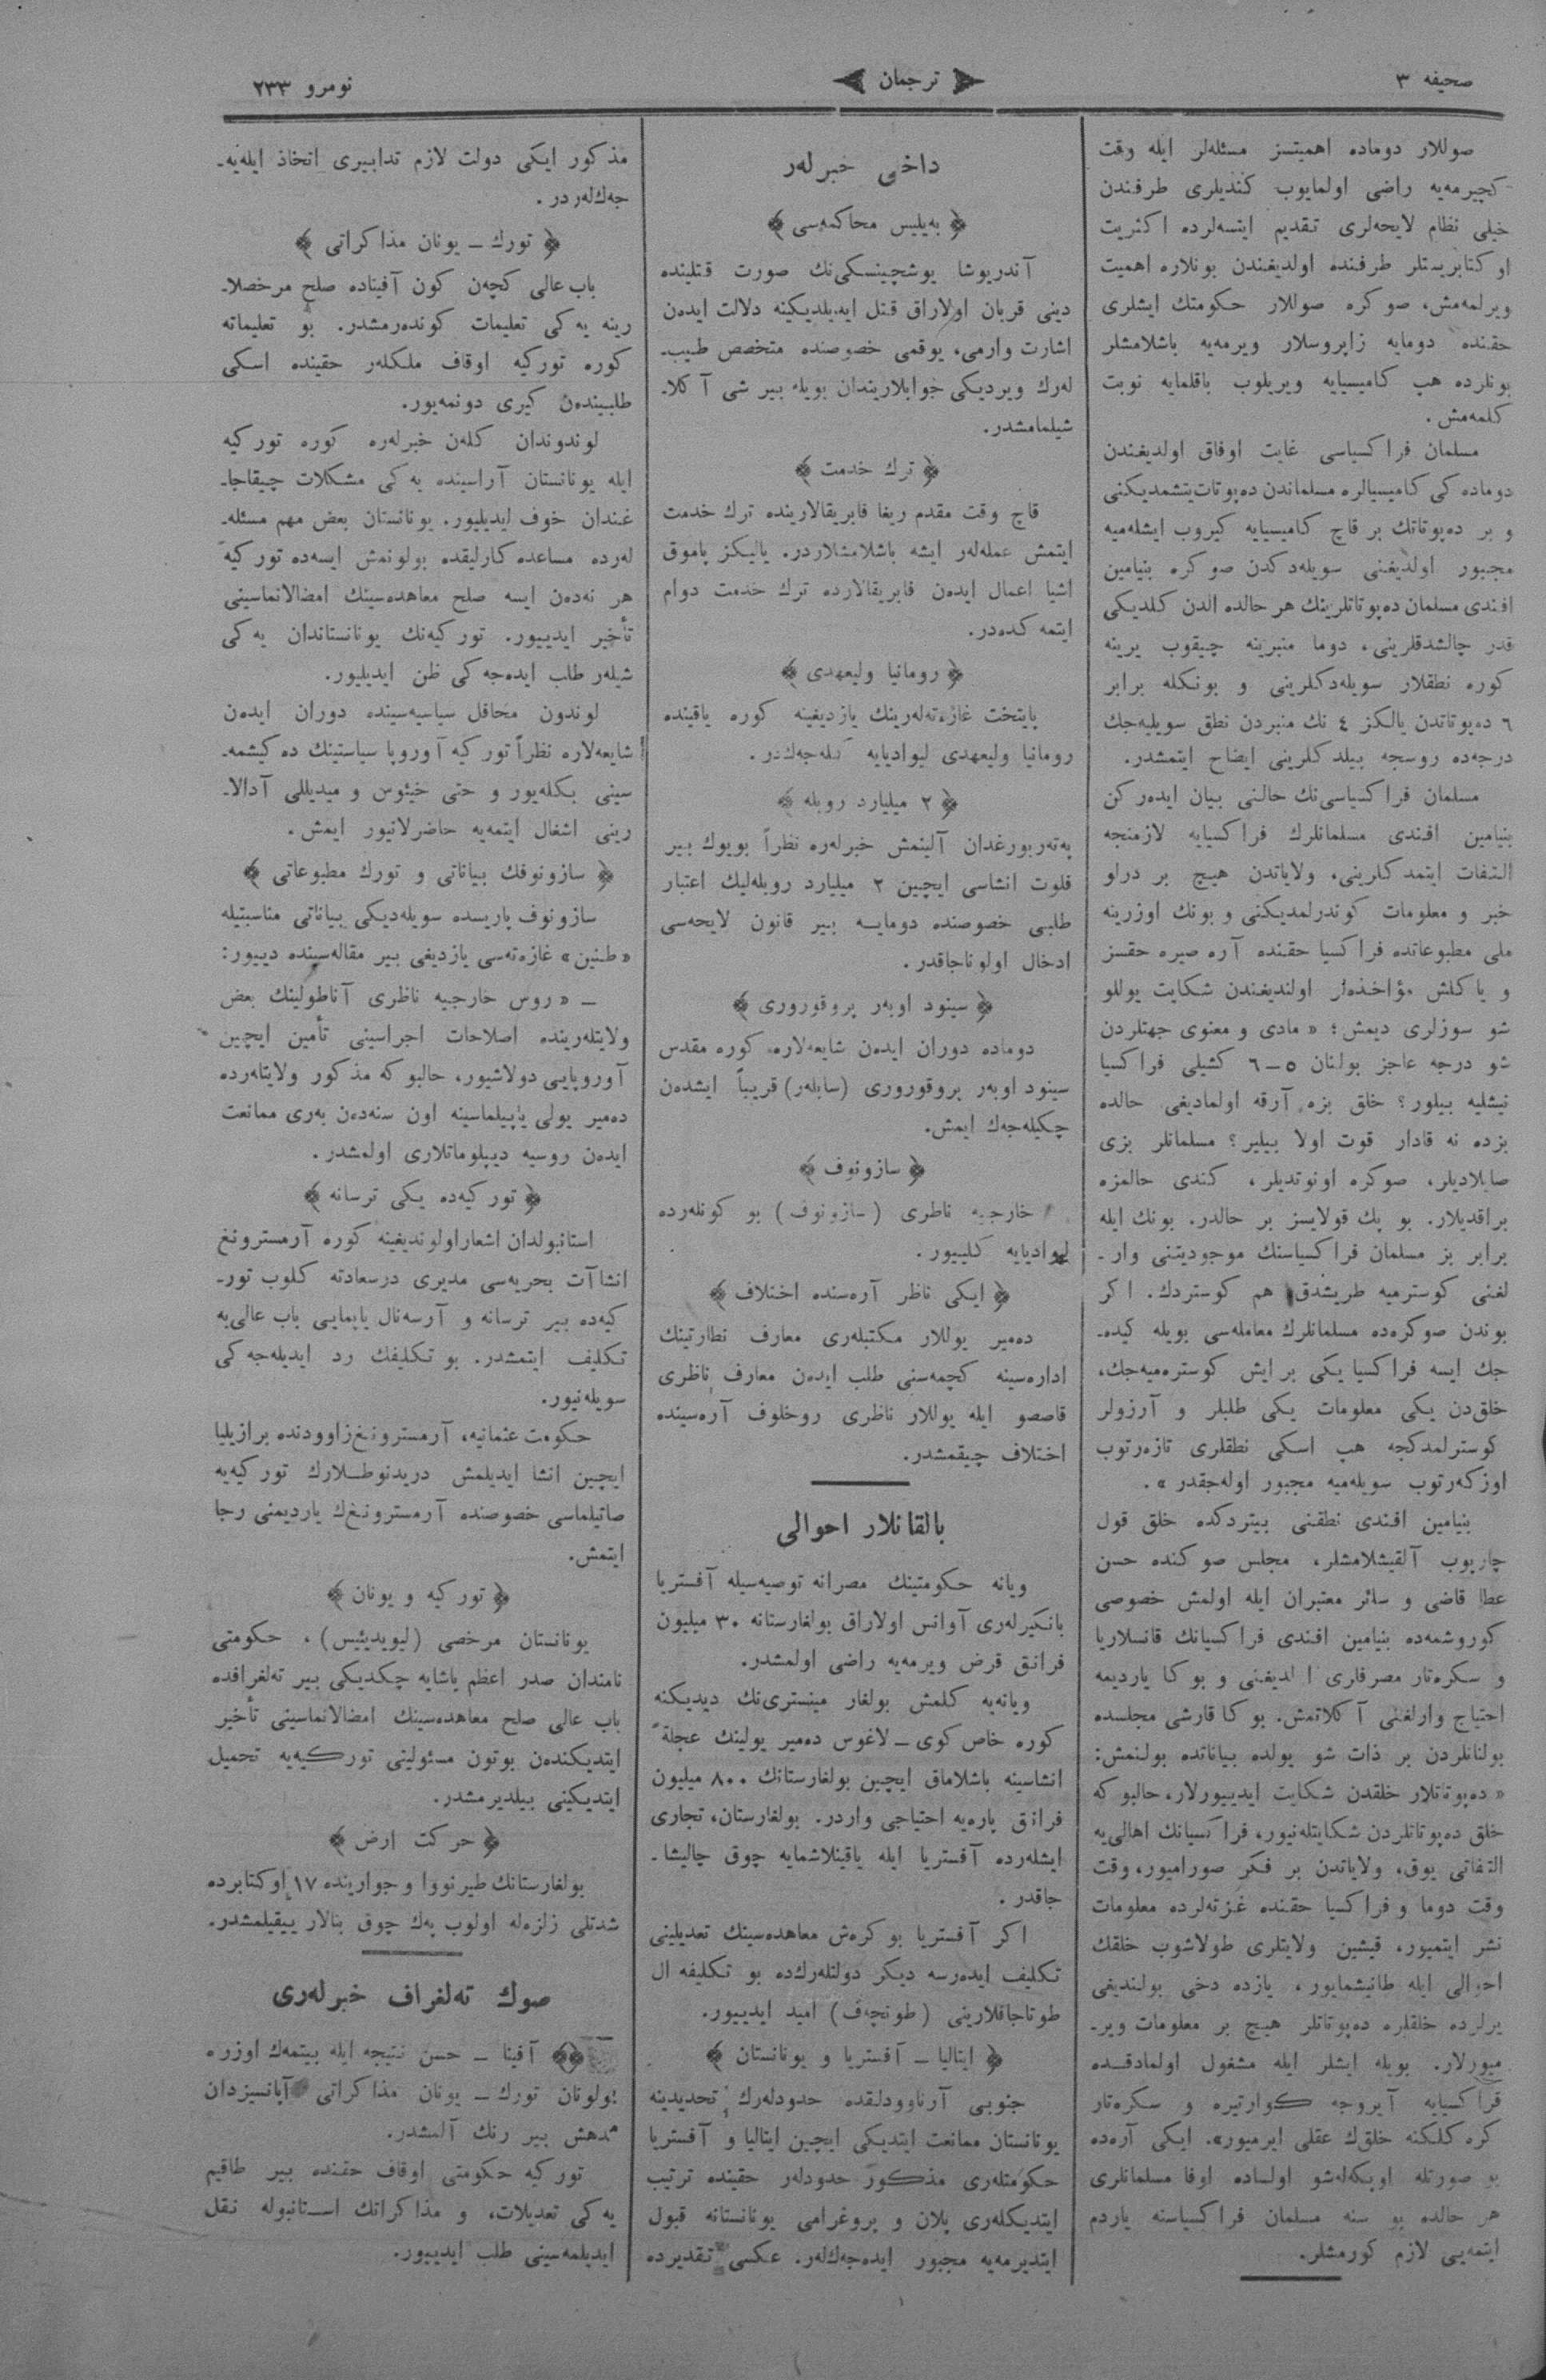 صحيفه ٣
ترجمان
نومرو ٢٣٣
صوللار دوماده اهميتسز مسئله‌لر ايله وقت
كچيرمه‌يه راضی اولمايوب كنديلری طرفندن
خيلی نظام لايحه‌لری تقديم ايتسه‌لرده اكثريت
اوكتابريستلر طرفنده اولديغندن بونلاره اهميت
ويرلمه‌مش، صوكره صوللار حكومتك ايشلری
حقنده دومايه زاپروسلار ويرمه‌يه باشلامشلر
بونلرده هپ كاميسيايه ويريلوب باقلمايه نوبت
كلمه‌مش.
مسلمان فراكسياسی غايت اوفاق اولديغندن
دوماده كی كاميسيالره مسلماندن ده‌پوتات يتشمديكنی
و بر ده‌پوتاتك بر قاچ كاميسيايه كيروب ايشله‌ميه
مجبور اولديغنی سويله‌دكدن صوكره بنيامين
افندی مسلمان ده‌پوتاتلرينك هر حالده الدن كلديكی
قدر چالشدقلرينی، دوما منبرينه چيقوب يرينه
كوره نطقلار سويله‌دكلرينی و بونكله برابر
٦ ده‌پوتاتدن يالكز ٤ نك منبردن نطق سويليه‌جك
درجه‌ده روسجه بيلدكلرينی ايضاح ايتمشدر.
مسلمان فراكسياسی‌نك حالنی بيان ايده‌ركن
بنيامين افندی مسلمانلرك فراكسيايه لازمنجه
التفات ايتمدكلرينی، ولاياتدن هيچ بر درلو
خبر و معلومات كوندرلمديكنی و بونك اوزرينه
ملی مطبوعاتده فراكسيا حقنده آره صيره حقسز
و ياكلش مؤاخذه‌لر اولنديغندن شكايت يوللو
شو سوزلری ديمش؛ «مادی و معنوی جهتلردن
شو درجه عاجز بولنان ٥–٦ كشيلی فراكسيا
نيشليه بيلور؟ خلق بزه آرقه اولماديغی حالده
بزده نه قادار قوت اولا بيلير؟ مسلمانلر بزی
صايلاديلر، صوكره اونوتديلر، كندی حالمزه
براقديلار. بو پك قولايسز بر حالدر. بونك ايله
برابر بز مسلمان فراكسياسنك موجوديتنی وار-
لغنی كوسترميه طريشدق هم كوستردك. اكر
بوندن صوكره‌ده مسلمانلرك معامله‌سی بويله كيده-
جك ايسه فراكسيا يكی بر ايش كوستره‌ميه‌جك،
خلق‌دن يكی معلومات يكی طلبلر و آرزولر
كوسترلمدكجه هپ اسكی نطقلری تازه‌رتوب
اوزكه‌رتوب سويله‌ميه مجبور اوله‌جقدر».
بنيامين افندی نطقنی بيتردكده خلق قول
چارپوب آلقيشلامشلر، مجلس صوكنده حسن
عطا قاضی و سائر معتبران ايله اولمش خصوصی
كوروشمه‌ده بنيامين افندی فراكسيانك قانسلاريا
و سكره‌تار مصرفلری الديغنی و بوكا يارديمه
احتياج وارلغنی آكلاتمش. بوكا قارشی مجلسده
بولنانلردن بر ذات شو يولده بياناتده بولنمش:
«ده‌پوتاتلار خلقدن شكايت ايدييورلار، حالبوكه
خلق ده‌پوتاتلردن شكايتله‌نيور، فراكسيانك اهالی‌يه
التفاتی يوق، ولاياتدن بر فكر صوراميور، وقت
وقت دوما و فراكسيا حقنده غزته‌لرده معلومات
نشر ايتميور، قيشين ولايتلری طولاشوب خلقك
احوالی ايله طانيشمايور، يازده دخی بولنديغی
يرلرده خلقلره ده‌پوتاتلر هيچ بر معلومات وير-
ميورلار. بويله ايشلر ايله مشغول اولمادقده
فراكسيايه آيروجه كوارتيره و سكره‌تار
كره‌كلكنه خلق‌ك عقلی ايرميور». ايكی آره‌ده
بو صورتله اوپكه‌له‌شو اولساده اوفا مسلمانلری
هر حالده بو سنه مسلمان فراكسياسنه ياردم
ايتمه‌يی لازم كورمشلر.
داخلی خبرلەر
﴿ به‌يليس محاكمه‌سی ﴾
آندريوشا يوشچينسكی‌نك صورت قتلينده
دينی قربان اولاراق قتل ايديلديكينه دلالت ايدەن
اشارت وارمی، يوقمی خصوصنده متخصص طبيب-
لەرك ويرديكی جوابلاريندان بويله بير شی آكلا-
شيلمامشدر.
﴿ ترك خدمت ﴾
قاچ وقت مقدم ريغا فابريقالارينده ترك خدمت
ايتمش عمله‌لەر ايشه باشلامشلاردر. ياليكز پاموق
اشيا اعمال ايدەن فابريقالارده ترك خدمت دوام
ايتمه كده‌در.
﴿ رومانيا وليعهدی ﴾
پايتخت غازه‌ته‌لەرينك يازديغينه كوره ياقينده
رومانيا وليعهدی ليواديايه كله‌جه‌كدر.
﴿ ٢ ميليارد روبله ﴾
پەتەربورغدان آلينمش خبرلەره نظراً بويوك بير
فلوت انشاسی ايچين ٢ ميليارد روبله‌ليك اعتبار
طلبی خصوصنده دومايه بير قانون لايحه‌سی
ادخال اولوناجاقدر.
﴿ سينود اوبەر پروقوروری ﴾
دوماده دوران ايدەن شايعه‌لاره كوره مقدس
سينود اوبەر پروقوروری (سابلەر) قريباً ايشدەن
چكيله‌جه‌ك ايمش.
﴿ سازونوف ﴾
خارجيه ناظری (سازونوف) بو كونلەرده
ليواديايه كلييور.
﴿ ايكی ناظر آره‌سنده اختلاف ﴾
دەمير يوللار مكتبلەری معارف نظارتينك
اداره‌سينه كچمه‌سنی طلب ايدەن معارف ناظری
قاصصو ايله يوللار ناظری روخلوف آره‌سينده
اختلاف چيقمشدر.
بالقانلار احوالی
ويانه حكومتينك مصرانه توصيه‌سيله آفستريا
بانكيرلەری آوانس اولاراق بولغارستانه ٣٠ ميليون
فرانق قرض ويرمه‌يه راضی اولمشدر.
ويانه‌يه كلمش بولغار مينستری‌نك ديديكنه
كوره خاص كوی – لاغوس دەمير يولينك عجلةً
انشاسينه باشلاماق ايچين بولغارستانك ٨٠٠ ميليون
فرانق پاره‌يه احتياجی واردر. بولغارستان، تجاری
ايشلەرده آفستريا ايله ياقينلاشمايه چوق چاليشا-
جاقدر.
اكر آفستريا بوكرەش معاهده‌سينك تعديلينی
تكليف ايدەرسه ديكر دولتلەرك‌ده بو تكليفه ال
طوتاجاقلارينی (طونچەف) اميد ايدييور.
﴿ ايتاليا – آفستريا و يونانستان ﴾
جنوبی آرناوودلقده حدودلەرك تحديدينه
يونانستان ممانعت ايتديكی ايچين ايتاليا و آفستريا
حكومتلەری مذكور حدودلەر حقينده ترتيب
ايتديكلەری پلان و پروغرامی يونانستانه قبول
ايتديرمه‌يه مجبور ايده‌جه‌كلەر. عكسی تقديرده
مذكور ايكی دولت لازم تدابيری اتخاذ ايله‌يه-
جه‌كلەردر.
﴿ تورك – يونان مذاكراتی ﴾
باب عالی كچەن كون آفيناده صلح مرخصلا-
رينه يەكی تعليمات كوندەرمشدر. بو تعليماته
كوره توركيه اوقاف ملكلەر حقينده اسكی
طلبيندەن كيری دونمه‌يور.
لوندوندان كلەن خبرلەره كوره توركيه
ايله يونانستان آراسينده يەكی مشكلات چيقاجا-
غندان خوف ايديليور. يونانستان بعض مهم مسئله-
لەرده مساعده‌كارليقده بولونمش ايسه‌ده توركيه
هر نەدەن ايسه صلح معاهده‌سينك امضالانماسينی
تأخير ايدييور. توركيه‌نك يونانستاندان يەكی
شيلەر طلب ايده‌جه‌كی ظن ايديليور.
لوندون محافل سياسيه‌سينده دوران ايدەن
شايعه‌لاره نظراً توركيه آوروپا سياستينك دەكيشمه-
سينی بكله‌يور و حتی خيئوس و ميديللی آدالا-
رينی اشغال ايتمه‌يه حاضرلانيور ايمش.
﴿ سازونوفك بياناتی و تورك مطبوعاتی ﴾
سازونوف پاريسده سويله‌ديكی بياناتی مناسبتيله
«طنين» غازه‌ته‌سی يازديغی بير مقاله‌سينده دييور:
– «روس خارجيه ناظری آناطولينك بعض
ولايتلەرينده اصلاحات اجراسينی تأمين ايچين
آوروپايی دولاشيور، حالبوكه مذكور ولايتلەرده
دەمير يولی ياپيلماسينه اون سنه‌دەن بەری ممانعت
ايدەن روسيه ديپلوماتلاری اولمشدر.
﴿ توركيه‌ده يكی ترسانه ﴾
استانبولدان اشعار اولونديغينه كوره آرمسترونغ
انشاآت بحريه‌سی مديری درسعادته كلوب تور-
كيه‌ده بير ترسانه و آرسەنال ياپمايی باب عالی‌يه
تكليف ايتمشدر. بو تكليفك رد ايديله‌جه‌كی
سويله‌نيور.
حكومت عثمانيه، آرمسترونغ زاوودنده برازيليا
ايچين انشا ايديلمش دريدنوطلارك توركيه‌يه
صاتيلماسی خصوصنده آرمسترونغ‌ك يارديمنی رجا
ايتمش.
﴿ توركيه و يونان ﴾
يونانستان مرخصی (ليويديئيس)، حكومتی
نامندان صدر اعظم پاشايه چكديكی بير تەلغرافده
باب عالی صلح معاهده‌سينك امضالانماسينی تأخير
ايتديكندەن بوتون مسئوليتی توركيه‌يه تحميل
ايتديكينی بيلديرمشدر.
﴿ حركت ارض ﴾
بولغارستانك طيرنووا و جوارينده ١٧ اوكتابرده
شدتلی زلزله اولوب پەك چوق بنالار ييقيلمشدر.
صوك تەلغراف خبرلەری
آفينا – حسن نتيجه ايله بيتمه‌ك اوزره
بولونان تورك – يونان مذاكراتی آپانسيزدان
مدهش بير رنك آلمشدر.
توركيه حكومتی اوقاف حقنده بير طاقيم
يەكی تعديلات، و مذاكراتك استانبوله نقل
ايديلمه‌سينی طلب ايدييور.